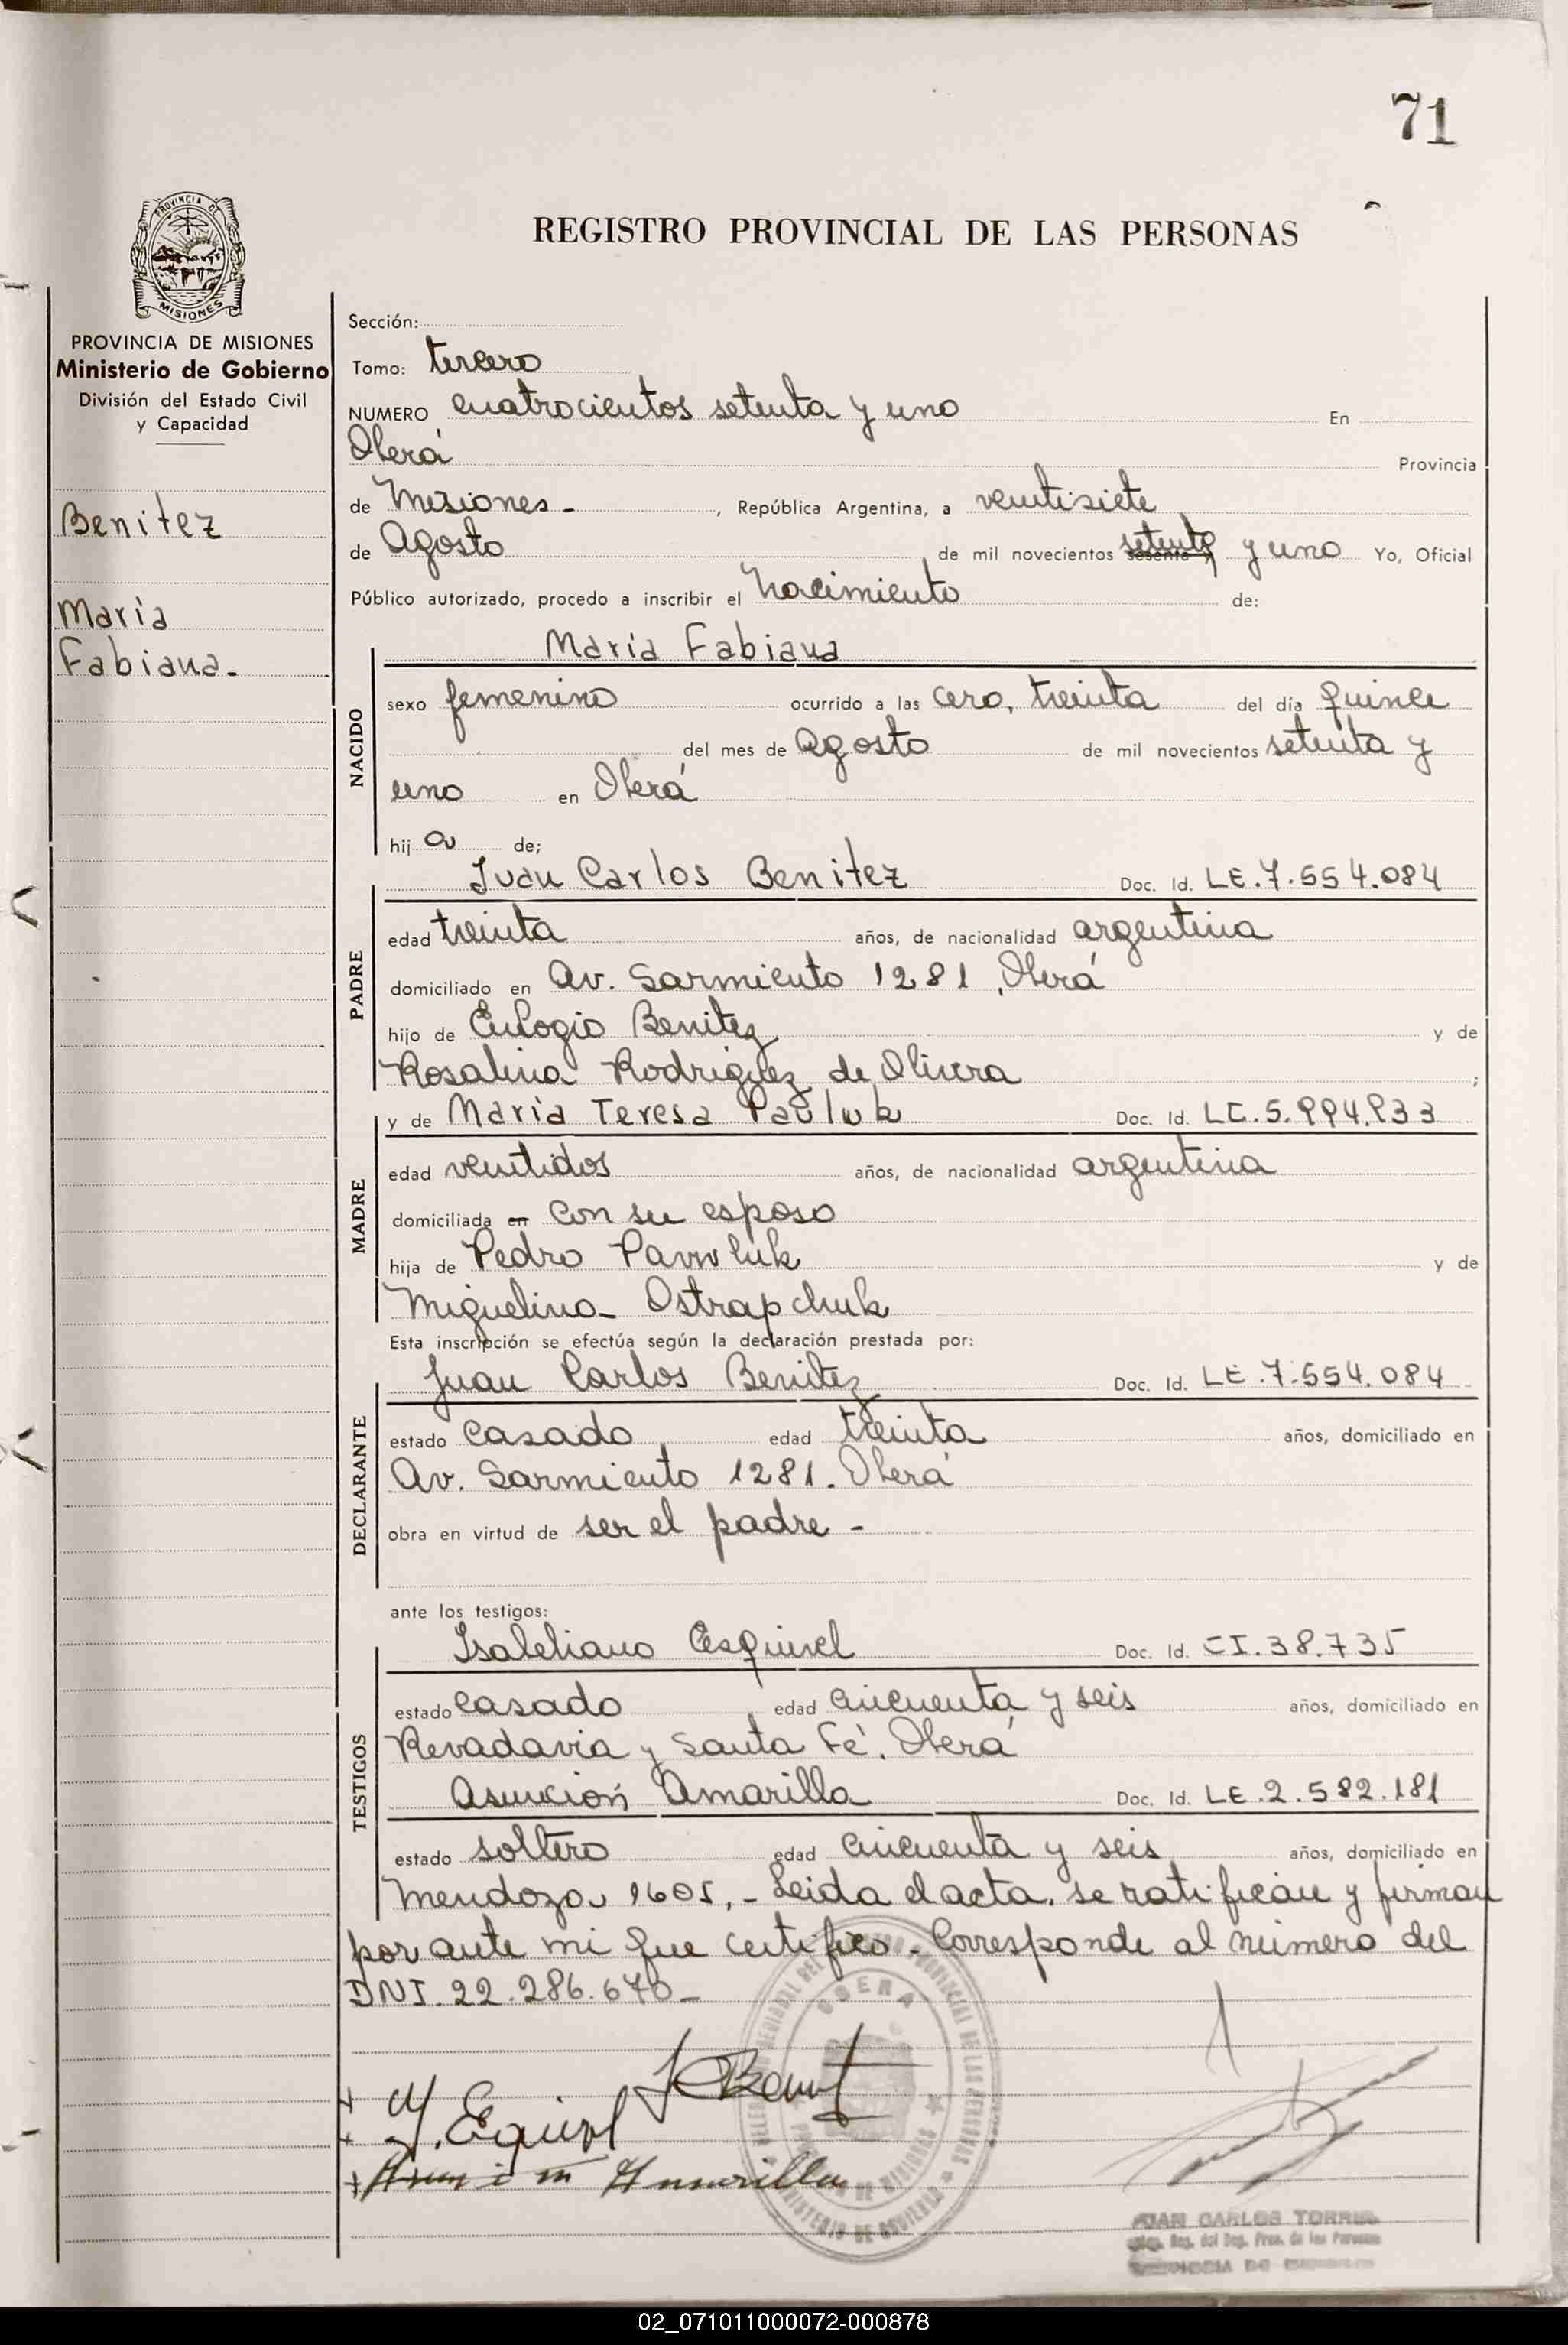 71
PROVINCIA DE
MISIONES
REGISTRO PROVINCIAL DE LAS PERSONAS
PROVINCIA DE MISIONES
Ministerio de Gobierno
División del Estado Civil
y Capacidad
Benitez
María
Fabiana.
Sección:
Tomo: tercero
NUMERO cuatrocientos setenta y uno En
Oberá Provincia
de Misiones - , República Argentina, a veintisiete
de Agosto de mil novecientos setenta y uno Yo, Oficial
Público autorizado, procedo a inscribir el nacimiento de:
María Fabiana
NACIDO
sexo femenino ocurrido a las cero, treinta del día quince
del mes de Agosto de mil novecientos setenta y
uno en Oberá
hij a de;
Juan Carlos Benitez Doc. Id. LE.7.554.084
PADRE
edad treinta años, de nacionalidad argentina
domiciliado en Av. Sarmiento 1281, Oberá
hijo de Eulogio Benitez y de
Rosalina Rodriguez de Olivera ;
y de María Teresa Pauluk Doc. Id. LC.5.994.933
MADRE
edad veintidos años, de nacionalidad argentina
domiciliada en con su esposo
hija de Pedro Pawluk y de
Miguelina Ostrapchuk
Esta inscripción se efectúa según la declaración prestada por:
Juan Carlos Benitez Doc. Id. LE.7.554.084
DECLARANTE
estado casado edad treinta años, domiciliado en
Av. Sarmiento 1281. Oberá
obra en virtud de ser el padre -
ante los testigos:
Isabeliano Esquivel Doc. Id. CI.38.735
TESTIGOS
estado casado edad cincuenta y seis años, domiciliado en
Revadavia y Santa Fé. Oberá
Asunción Amarilla Doc. Id. LE.2.582.181
estado soltero edad cincuenta y seis años, domiciliado en
Mendoza 1605, - Leida el acta. se ratifican y firman
por ante mi que certifico - Corresponde al número del
DNI. 22.286.670 -
Amarilla
OBERA
JUAN CARLOS TORRES
02_071011000072-000878